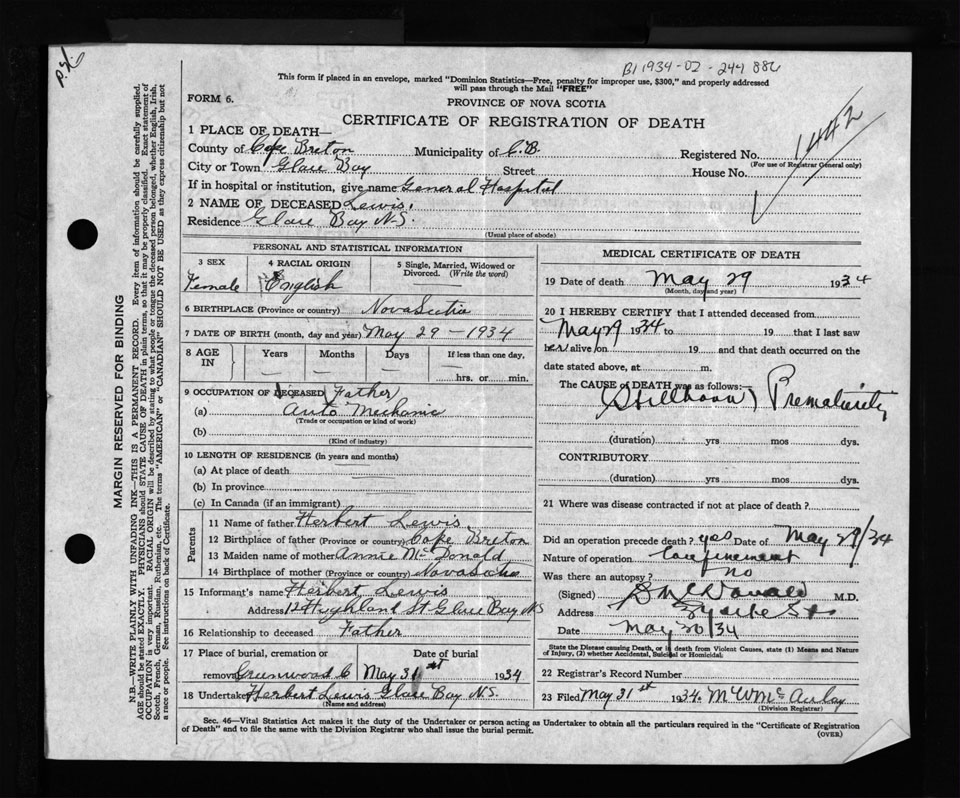 B1 1934-02-244 886
This form if placed in an envelope, marked "Dominion Statistics—Free, penalty for improper use, $300," and properly addressed
will pass through the Mail "FREE"
FORM 6.
PROVINCE OF NOVA SCOTIA
CERTIFICATE OF REGISTRATION OF DEATH
1442
1 PLACE OF DEATH—
County of Cape Breton Municipality of C.B. Registered No.
(For use of Registrar General only)
City or Town Glace Bay Street House No.
If in hospital or institution, give name General Hospital
2 NAME OF DECEASED Lewis.
Residence Glace Bay N.S.
(Usual place of abode)
PERSONAL AND STATISTICAL INFORMATION
3 SEX 4 RACIAL ORIGIN 5 Single, Married, Widowed or
Divorced. (Write the word)
Female English
6 BIRTHPLACE (Province or country) Nova Scotia
7 DATE OF BIRTH (month, day and year) May 29 - 1934
8 AGE IN Years Months Days If less than one day,
hrs. or min.
9 OCCUPATION OF DECEASED Father
(a) Auto Mechanic
(Trade or occupation or kind of work)
(b)
(Kind of industry)
10 LENGTH OF RESIDENCE (in years and months)
(a) At place of death
(b) In province
(c) In Canada (if an immigrant)
Parents
11 Name of father Herbert Lewis
12 Birthplace of father (Province or country) Cape Breton
13 Maiden name of mother Annie McDonald
14 Birthplace of mother (Province or country) Nova Scotia
15 Informant's name Herbert Lewis
Address 12 Highland St Glace Bay NS
16 Relationship to deceased Father
17 Place of burial, cremation or Date of burial
removal Greenwood C May 31st 1934
18 Undertaker Herbert Lewis Glace Bay N.S.
(Name and address)
MEDICAL CERTIFICATE OF DEATH
19 Date of death May 29 1934
(Month, day and year)
20 I HEREBY CERTIFY that I attended deceased from
May 29 1934 to 19 that I last saw
her alive on 19 and that death occurred on the
date stated above, at m.
The CAUSE OF DEATH was as follows:
(Stillborn) Prematurity
(duration) yrs mos dys.
CONTRIBUTORY
(duration) yrs mos dys.
21 Where was disease contracted if not at place of death?
Did an operation precede death? yes Date of May 29/34
Nature of operation Confinement
Was there an autopsy? no
(Signed) McDonald M.D.
Address
Date May 30/34
State the Disease causing Death, or in death from Violent Causes, state (1) Means and Nature
of Injury, (2) whether Accidental, Suicidal or Homicidal.
22 Registrar's Record Number
23 Filed May 31st 1934 McAulay
(Division Registrar)
Sec. 46—Vital Statistics Act makes it the duty of the Undertaker or person acting as Undertaker to obtain all the particulars required in the "Certificate of Registration
of Death" and to file the same with the Division Registrar who shall issue the burial permit.
(OVER)
MARGIN RESERVED FOR BINDING
N.B.—WRITE PLAINLY WITH UNFADING INK—THIS IS A PERMANENT RECORD. Every item of information should be carefully supplied.
AGE should be stated EXACTLY. PHYSICIANS should STATE CAUSE OF DEATH in plain terms, so that it may be properly classified. Exact statement of
OCCUPATION is very important. RACIAL ORIGIN will be described by stating to what people or tongue the deceased person belonged, whether English, Irish,
Scotch, French, German, Russian, Ruthenian, etc. The terms "AMERICAN" or "CANADIAN" SHOULD NOT BE USED as they express citizenship but not
a race or people. See instructions on back of Certificate.